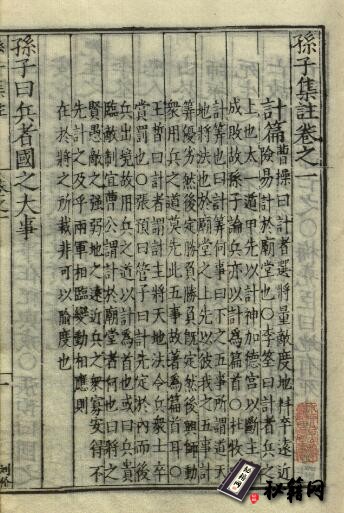 孫子集註卷之一
計篇曹操曰計者選將量敵度地料卒遠近
險易計於廟堂也○李筌曰計者兵之
上也太一遁甲先以計神加德宮以斷主客
成敗故孫子論兵亦以計爲篇首○杜牧曰
計算也曰計算何事曰下之五事所謂道天
地將法也於廟堂之上先以彼我之五事計
算優劣然後定勝負勝負既定然後興師動
衆用兵之道莫先此五事故著爲篇首耳○
王晳曰計者謂計主將天地法令兵衆士卒
賞罰也○張預曰管子曰計先定於內而後
兵出境故用兵之道以計爲首也或曰兵貴
臨敵制宜曹公謂計於廟堂者何也曰將之
賢愚敵之強弱地之遠近兵之衆寡安得不
先計之及乎兩軍相臨變動相應則
在於將之所裁非可以隃度也
孫子曰兵者國之大事
一
秘籍网